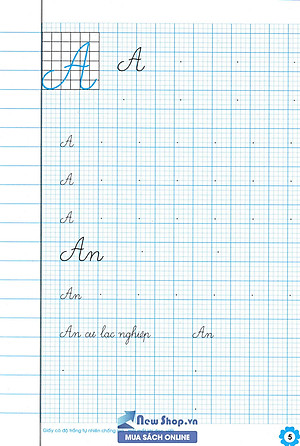 A A
A
A
A
An
An
An cư lạc nghiệp An
Giấy có độ trắng tự nhiên chống
New Shop.vn
MUA SÁCH ONLINE
5